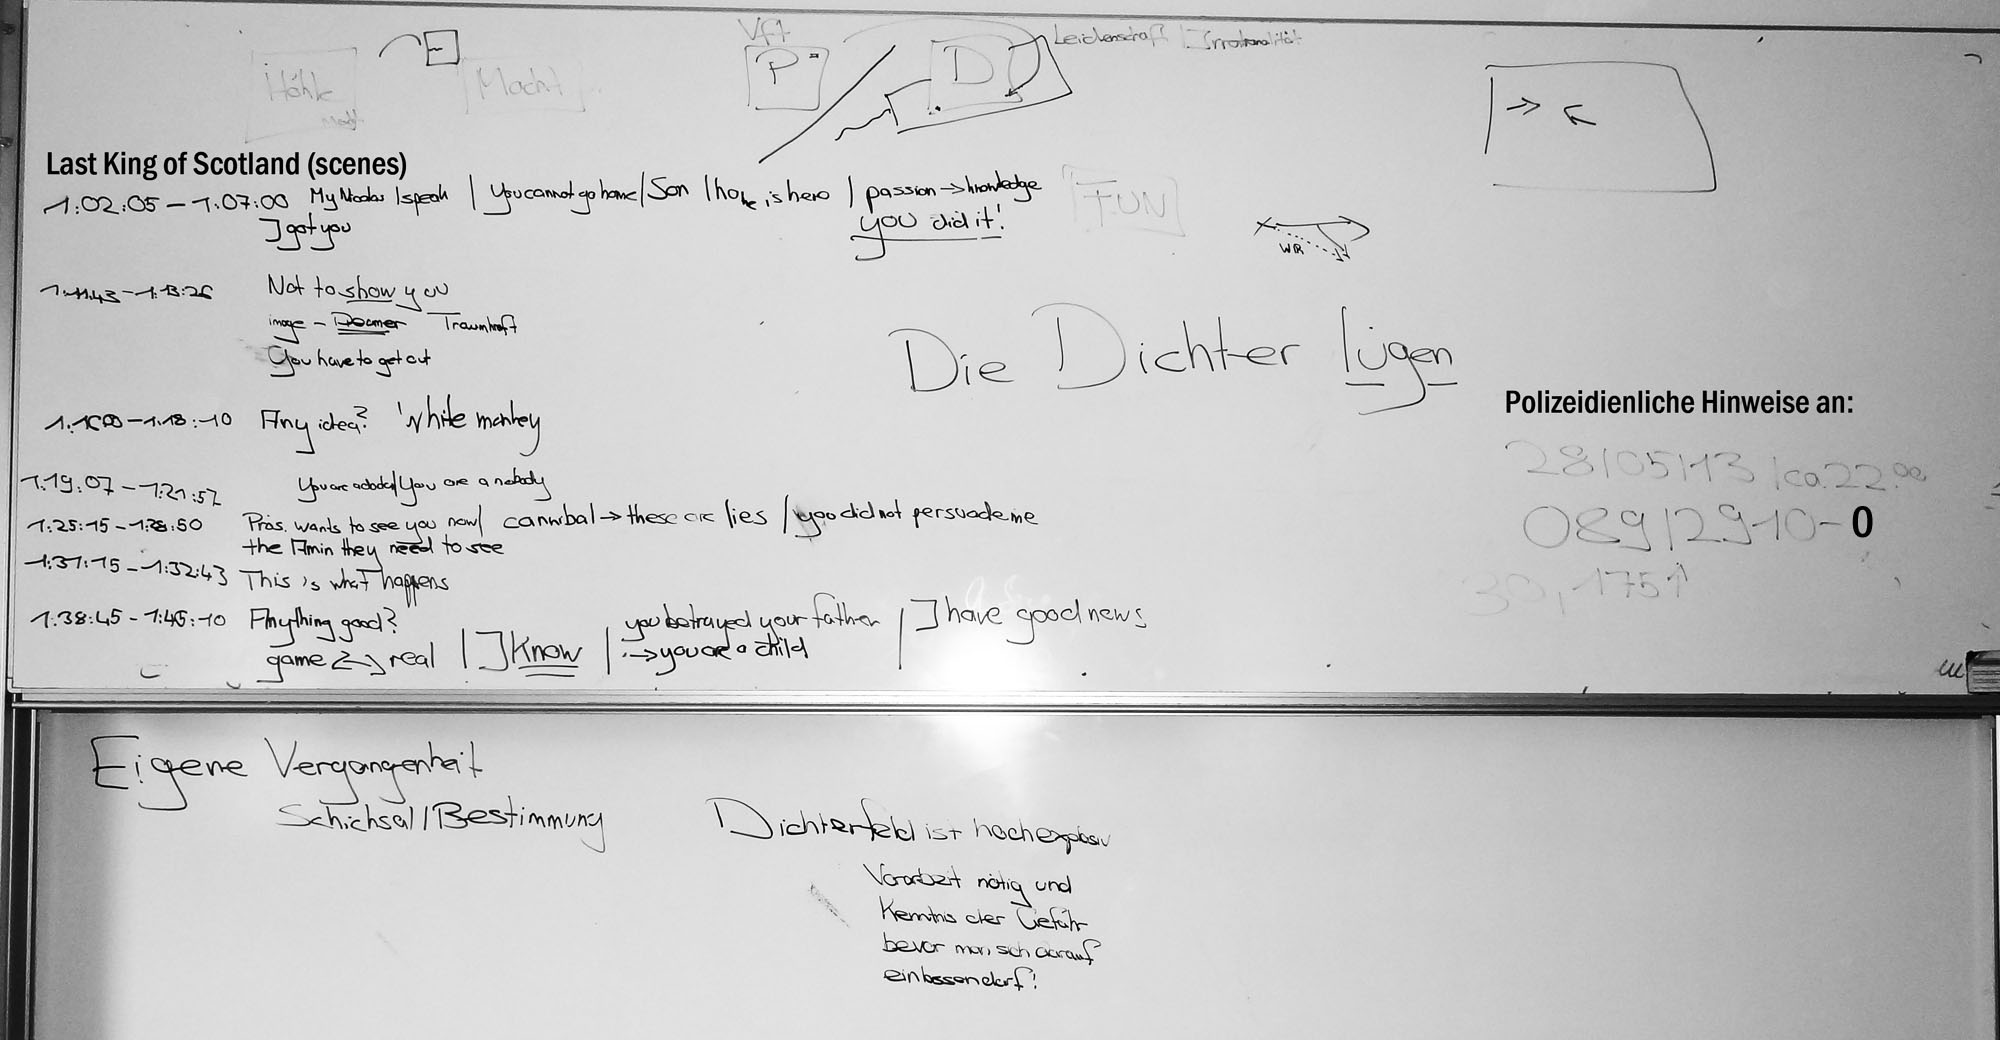 Vft
Leidenschaft | Irrationalität
E
P
D
Höhle
Macht
Last King of Scotland (scenes)
1:02:05 – 1:07:00 My Nicolas I speak | You cannot go home / Son / is hero / passion → knowledge
I got you
you did it!
FUN
WIR
1:11:43 – 1:13:26 Not to show you
image – Traumhaft
You have to get out
Die Dichter lügen
Polizeidienliche Hinweise an:
– 1:18:10 Any idea? White monkey
28/05/13 / ca. 22.00
1:19:07 – 1:21:57 You are a nobody
089/2910-0
1:25:15 – 1:28:50 Präs. wants to see you now / cannibal → these are lies / you did not persuade me
the Amin they need to see
1:31:15 – 1:32:43 This is what happens
30, 175↑
1:38:45 – 1:45:10 Anything good?
you betrayed your father | I have good news
game real | I Know | → you are a child
Eigene Vergangenheit
Schicksal / Bestimmung
Dichterfeld ist hochexplosiv
Vorarbeit nötig und
Kenntnis der Gefahr
bevor man sich darauf
einlassen darf!